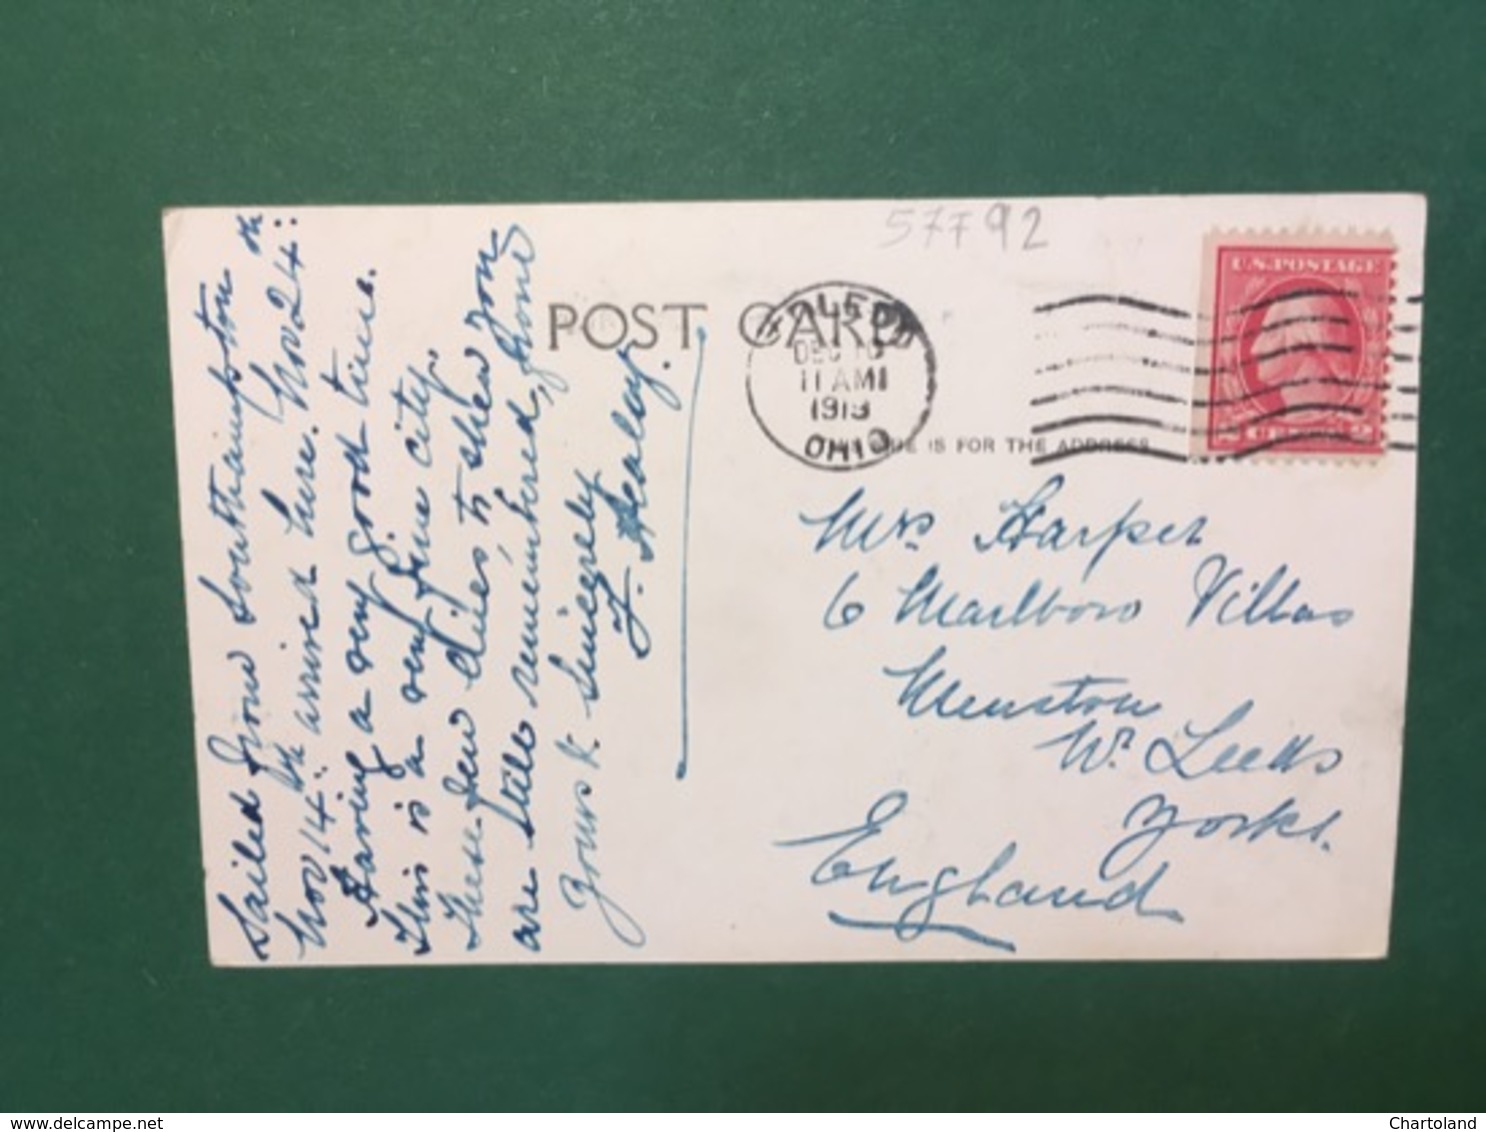 57792
POST CARD
TOLEDO
DEC 10
11 AM
1919
OHIO
IS FOR THE ADDRESS
U.S. POSTAGE
2 CENTS 2
Sailed from Southampton on
Nov 14th arrived here Nov 24:
Having a very good time.
This is a very fine city.
These few lines to shew you
are still remembered, from
Yours v. Sincerely
F. Healey.
Mrs Harper
6 Marlboro Villas
Menston
Nr Leeds
Yorks.
England
Chartoland